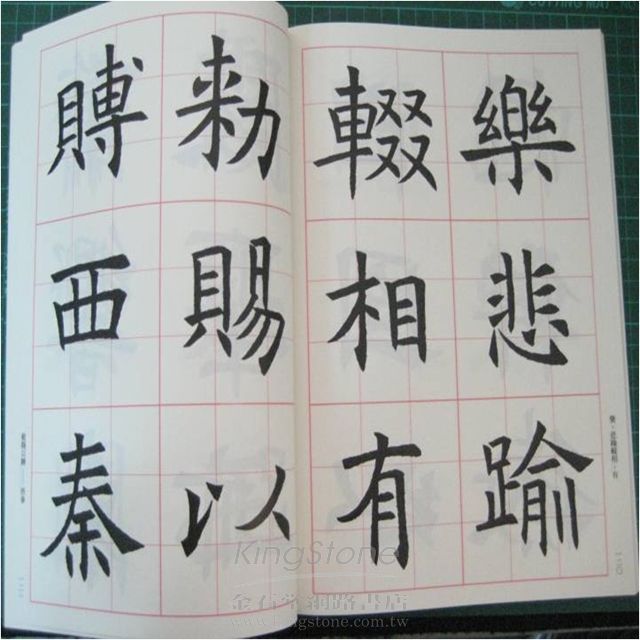 樂悲踰
輟相有
勑賜以
賻西秦
樂。悲踰輟相。有
CUTTING MAT
KingStone
金石堂網路書店
www.kingstone.com.tw